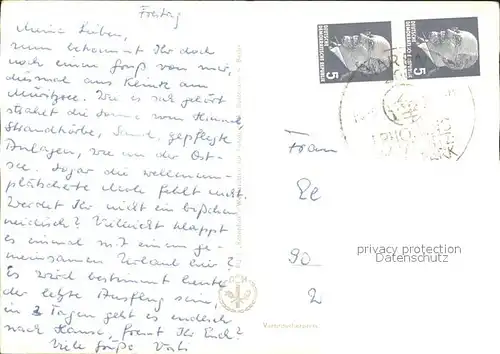 Freitag
Meine Lieben,
nun bekommt Ihr doch
noch einen Gruß von mir,
diesmal aus Klink am
Müritzsee. Wie es sich gehört
strahlt die Sonne vom Himmel,
Strandkörbe, Sand, gepflegte
Anlagen, wie an der Ost-
see. Sogar die wellenum-
plätscherte Mole fehlt nicht.
Werdet Ihr nicht ein bißchen
neidisch? Vielleicht klappt
es einmal mit einem ge-
meinsamen Urlaub hier?
Es wird bestimmt heute
der letzte Ausflug sein,
in 2 Tagen geht es endlich
nach Hause, freut Ihr Euch?
Viele Grüße
DEUTSCHE
DEMOKRATISCHE REPUBLIK
5
DEUTSCHE
DEMOKRATISCHE REPUBLIK
5
Frau
90
2
privacy protection
Datenschutz